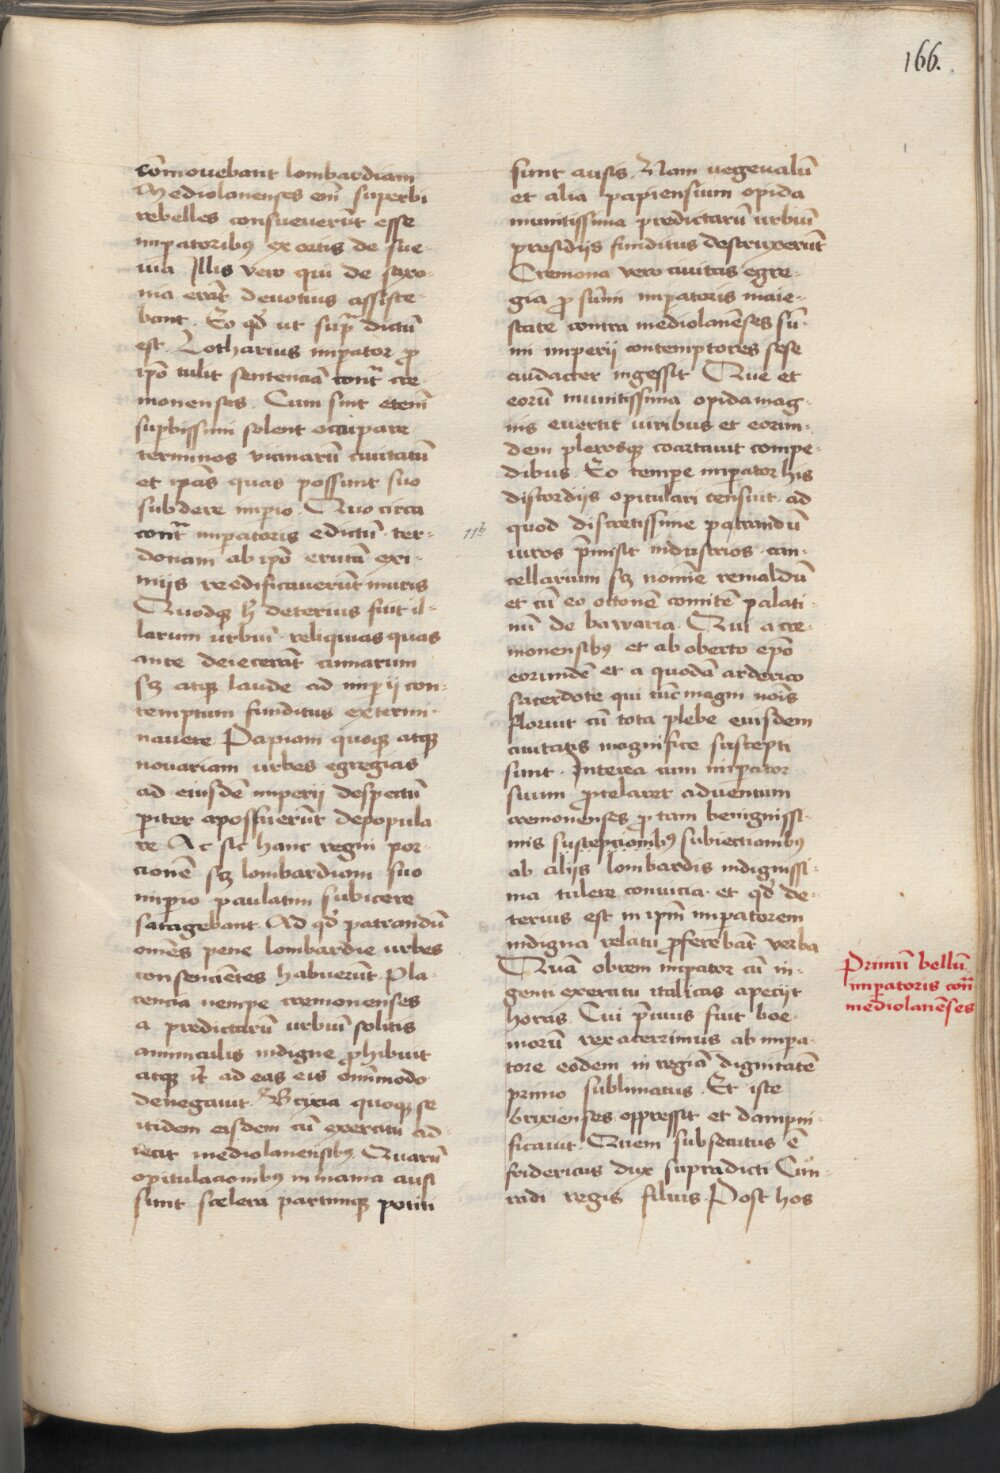 166.
cōmovebant lombardiam
Mediolanenses em̄ superbi
rebelles consueverūt esse
impatoribꝰ ex ortis de sue-
uia Illis vero qui de saxo-
nia erāt devotius assiste-
bant. Eo qd̛ ut sup̄ dictū
est. Lotharius impator ꝓ
ip̄o tulit sentenciā cont̄ cre-
monenses. Cum sint etem̄
supbissimi solent occupare
terminos vicinarū civitatū
et ip̄as quas possunt suo
subdere impio. Quo circa
cont̄ impatoris edictū ter-
donam ab ip̄o erutā exi-
miis reedificaverūt muris
Quodqꝫ h̄ deterius fuit il-
larum urbiū reliquias quas
ante deiecerāt cumarum
sꝫ atqꝫ laude ad imperij con-
temptum funditus extermi-
navere. Papiam quoqꝫ atqꝫ
novariam urbes egregias
ad eiusdē imperij despectū
ꝑiter aposuerūt depopula
re. Ac sic hanc regni por-
cionē sꝫ lombardiam suo
impio paulatim subicere
satagebant. Ad qd̛ patrandū
omēs pene lombardie urbes
consenciētes habuerūt. Pla-
cencia nempe cremonenses
a predictarū urbiū solitis
amminculis indigne ꝓhibuit
atqꝫ it̄ ad eas eis omīmodo
denegavit. Brixia quoqꝫ se
itidem eisdem cū exercitu ad-
iecit mediolanensibꝰ. Quarū
opitulacionibꝰ inmania ausi
sunt scelera partimqꝫ potiti
sunt ausis. Nam vegevalū
et alia papiensium opida
munitissima predictarū urbiū
presidijs funditus destruxerūt
Cremona vero civitas egre-
gia ꝓ sum̄i impatoris maie-
state contra mediolanēses sū-
mi imperij contemptores sese
audacter ingessit. Que et
eorū munitissima opida mag-
nis evertit viribus et eorun-
dem plerosqꝫ coartavit compe-
dibus. Eo tempe imperator his
discordijs opitulari censuit. ad
quod discretissime patrandū
viros p̄misit industrios. can-
cellarium sꝫ nomīe remaldū
et cū eo ottonē comitē palati-
nū de bawaria. Qui a cre-
monensibꝰ et ab oberto ep̄o
eorundē et a quodā arderico
sacerdote qui tūc magni noīs
floruit cū tota plebe eiusdem
civitatis magnifice suscepti
sunt. Interea cum imperator
suum ꝓtelaret adventum
cremonenses ꝓ tam benignissi-
mis susceptionībꝰ subiectionibꝰ
ab alijs lombardis indignissi-
ma tulere convicia. et qd̛ de-
terius est in ip̄m impatorem
indigna relatu ꝓferebāt verba
Quā obrem impator cū in-
genti exercitu italicas apecijt
horas. Cui p̄mus fuit boe-
morū rex acerrimus ab impa-
tore eodem in regiā dignitatē
primo sublimatus. Et iste
brixienses oppressit et dampni-
ficavit. Quem subsecutus ē
fridericus dux supradicti Cun-
radi regis filius. Post hos
Primū bellū
impatoris con̄
mediolanēses